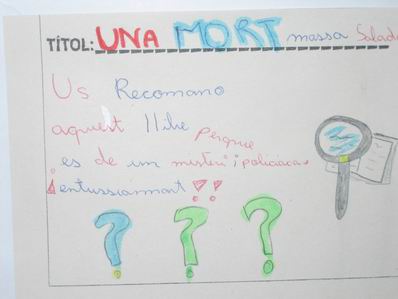 TÍTOL: UNA MORT massa Salada
Us Recomano
aquest llibre perque
es de un misteri i policiaca
¡entussiasmant!!
? ? ?